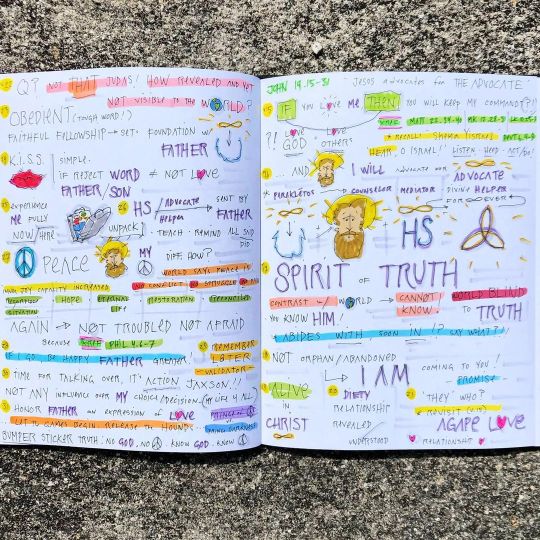 22 Q? NOT THAT JUDAS! HOW REVEALED AND YET
NOT VISIBLE TO THE WORLD?
23 OBEDIENT (TOUGH WORD!)
FAITHFUL FELLOWSHIP → SET FOUNDATION W/
FATHER
24 K.I.S.S. SIMPLE.
IF REJECT WORD ≠ NOT LOVE
FATHER/SON
25 EXPERIENCE
ME FULLY
NOW/HERE
UNPACK
26 HS / ADVOCATE
HELPER → SENT BY
MY FATHER
TEACH · REMIND ALL
DID
27 PEACE MY DIFF HOW?
WORLD SAYS PEACE IS
JOY CAPACITY INCREASED
NO CONFLICT
HOPE ETERNAL
LIFE RESTORATION RECONCILED
SITUATION
AGAIN → NOT TROUBLED NOT AFRAID
BECAUSE PHIL 4.6-7
28 IF I GO, BE HAPPY FATHER GREATER!
29 REMEMBER
LATER
VALIDATOR
30 TIME FOR TALKING OVER, IT'S ACTION JAXSON!!
NOT ANY INFLUENCE OVER MY CHOICE/DECISION (MY LIFE 4 ALL)
31 HONOR FATHER AN EXPRESSION OF LOVE
LET THE GAMES BEGIN RELEASE THE HOUNDS
BUMPER STICKER TRUTH: NO GOD, NO · KNOW GOD, KNOW
JOHN 14.15-31 JESUS ADVOCATES FOR THE ADVOCATE
15 IF YOU LOVE ME THEN! YOU WILL KEEP MY COMMAND?!!
MATT 22.34-40
?! LOVE LOVE
GOD OTHERS
RECALL! SHEMA YISRAEL
HEAR, O ISRAEL! LISTEN · HEED · ACT/DO!
... AND I WILL ADVOCATE
PARAKLĒTOS → COUNSELOR MEDIATOR DIVINE HELPER
FOR EVER
+ HS
17 SPIRIT OF TRUTH
CONTRAST W/ WORLD → CANNOT
KNOW. WORLD BLIND
TO TRUTH
YOU KNOW HIM!
ABIDES WITH, SOON IN (? SAY WHAT?!)
18 NOT ORPHAN/ABANDONED
I AM COMING TO YOU!
PROMISE
19 ALIVE
IN
CHRIST
20 DIETY
RELATIONSHIP
REVEALED/
UNDERSTOOD
21 "THEY" WHO?
REVISIT
AGAPE LOVE
RELATIONSHIP